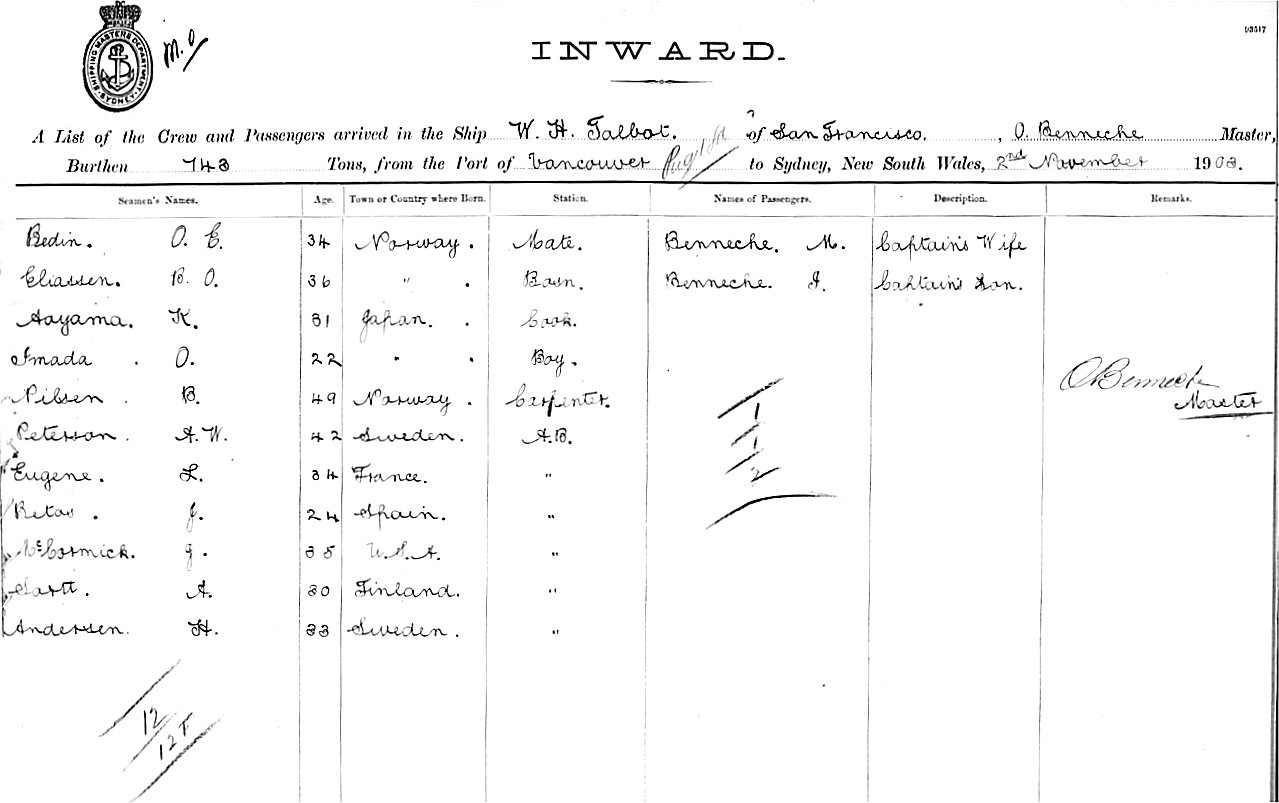 93517
SHIPPING MASTERS DEPARTMENT SYDNEY
M.O
INWARD.
A List of the Crew and Passengers arrived in the Ship W. H. Talbot. of San Francisco, O. Benneche Master,
Burthen 743 Tons, from the Port of Vancouver to Sydney, New South Wales, 2nd November 1903.
Seamen's Names. Age. Town or Country where Born. Station. Names of Passengers. Description. Remarks.
Bedin. O. E. 34 Norway. Mate. Benneche. M. Captain's Wife
Eliassen. B. O. 36 " . Bosn. Benneche. I. Captain's Son.
Aoyama. K. 31 Japan. . Cook.
Imada . O. 22 " . Boy.
Nilsen . B. 49 Norway . Carpenter.
O Benneche
Master
Peterson. A. W. 42 Sweden. A.B.
Eugene. L. 34 France. "
Retas . J. 24 Spain. "
McCormick. J. 35 U.S.A. "
Sartt. A. 30 Finland. "
Andersen. H. 33 Sweden. "
1
1
2
12
12 F